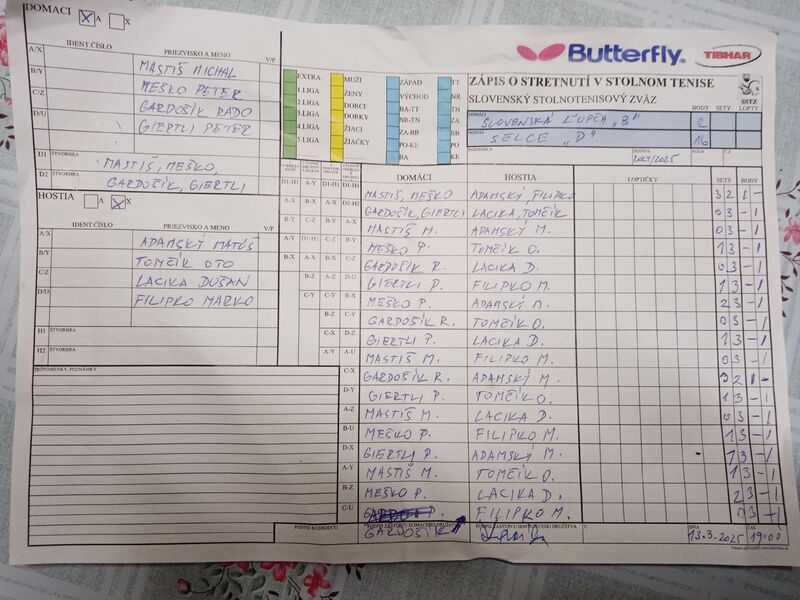 DOMACI X A X
IDENT.ČÍSLO PRIEZVISKO A MENO V/P
A/X MASTIŠ MICHAL
B/Y MEŠKO PETER
C/Z GARDOŠIK RADO
D/U GIERTLI PETER
D1 ŠTVORHRA MASTIŠ, MEŠKO,
D2 GARDOŠIK, GIERTLI
HOSTIA A X X
IDENT.ČÍSLO PRIEZVISKO A MENO V/P
A/X ADAMSKÝ MATÚŠ
B/Y TOMČÍK OTO
C/Z LACIKA DUŠAN
D/U FILIPKO MARKO
H1 ŠTVORHRA
H2 ŠTVORHRA
PRIPOMIENKY, POZNÁMKY
PODPIS ROZHODCU
EXTRA
1.LIGA
2.LIGA
3.LIGA
4.LIGA
5.LIGA
MUŽI
ŽENY
DORCI
DORKY
ŽIACI
ŽIAČKY
ZÁPAD
VÝCHOD
BA-TT
NR-TN
ZA-BB
PO-KE
BA
TT
NR
TN
ZA
BB
PO
KE
Butterfly TIBHAR
ZÁPIS O STRETNUTÍ V STOLNOM TENISE
SLOVENSKÝ STOLNOTENISOVÝ ZVÄZ SSTZ
BODY SETY LOPTY
DOMÁCI SLOVENSKÁ ĽUPČA "B" 2
HOSTIA SELCE "D" 16
ROZHODCA SEZÓNA 2024/2025 KOLO Č.
DOMÁCI HOSTIA LOPTIČKY SETY BODY
MASTIŠ, MEŠKO ADAMSKÝ, FILIPKO 3 2 1 -
GARDOŠIK, GIERTLI LACIKA, TOMČÍK 0 3 - 1
MASTIŠ M. ADAMSKÝ M. 0 3 - 1
MEŠKO P. TOMČÍK O. 1 3 - 1
GARDOŠIK R. LACIKA D. 0 3 - 1
GIERTLI P. FILIPKO M. 1 3 - 1
MEŠKO P. ADAMSKÝ M. 2 3 - 1
GARDOŠIK R. TOMČÍK O. 0 3 - 1
GIERTLI P. LACIKA D. 1 3 - 1
MASTIŠ M. FILIPKO M. 0 3 - 1
C-X GARDOŠIK R. ADAMSKÝ M. 3 2 1 -
D-Y GIERTLI P. TOMČÍK O. 1 3 - 1
A-Z MASTIŠ M. LACIKA D. 0 3 - 1
B-U MEŠKO P. FILIPKO M. 1 3 - 1
D-X GIERTLI P. ADAMSKÝ M. 1 3 - 1
A-Y MASTIŠ M. TOMČÍK O. 1 3 - 1
B-Z MEŠKO P. LACIKA D. 2 3 - 1
C-U FILIPKO M. 0 3 - 1
PODPIS ZÁSTUPCU DOMÁCEHO DRUŽSTVA PODPIS ZÁSTUPCU HOSŤUJÚCEHO DRUŽSTVA V DŇA ČAS
GARDOŠIK 13.3.2025 19:00